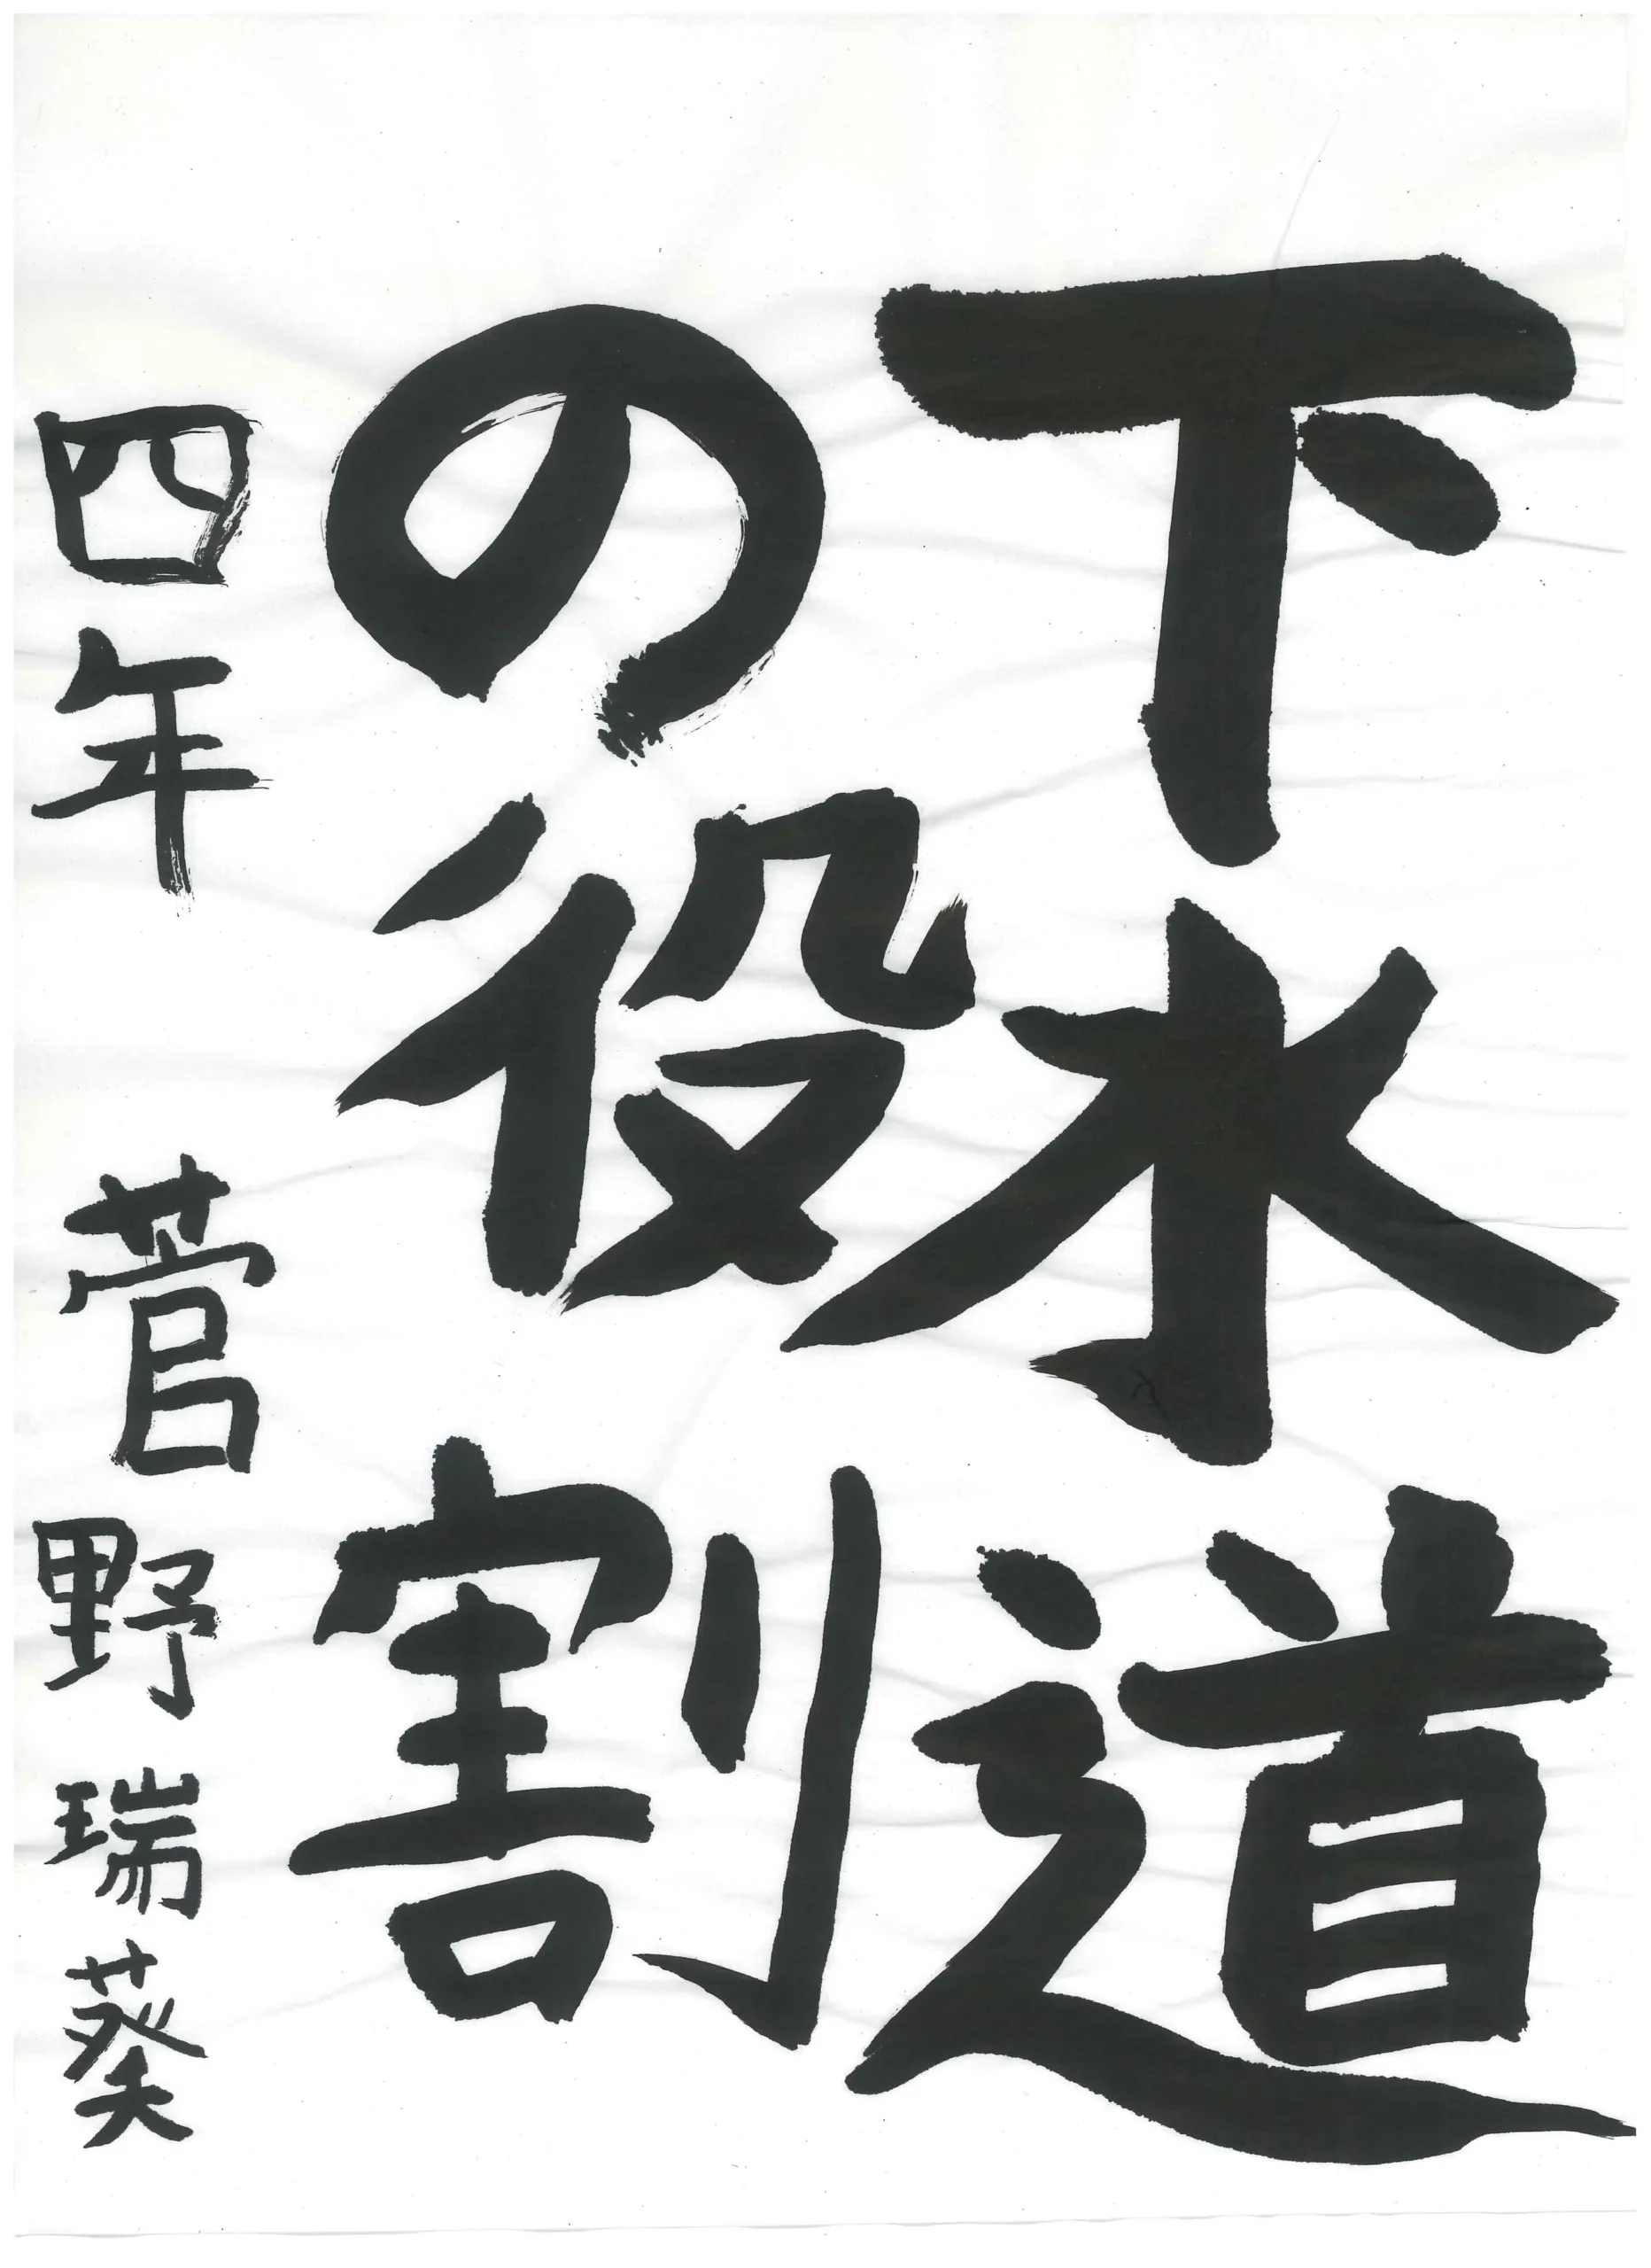 下水道
の役割
四年 菅野瑞葵